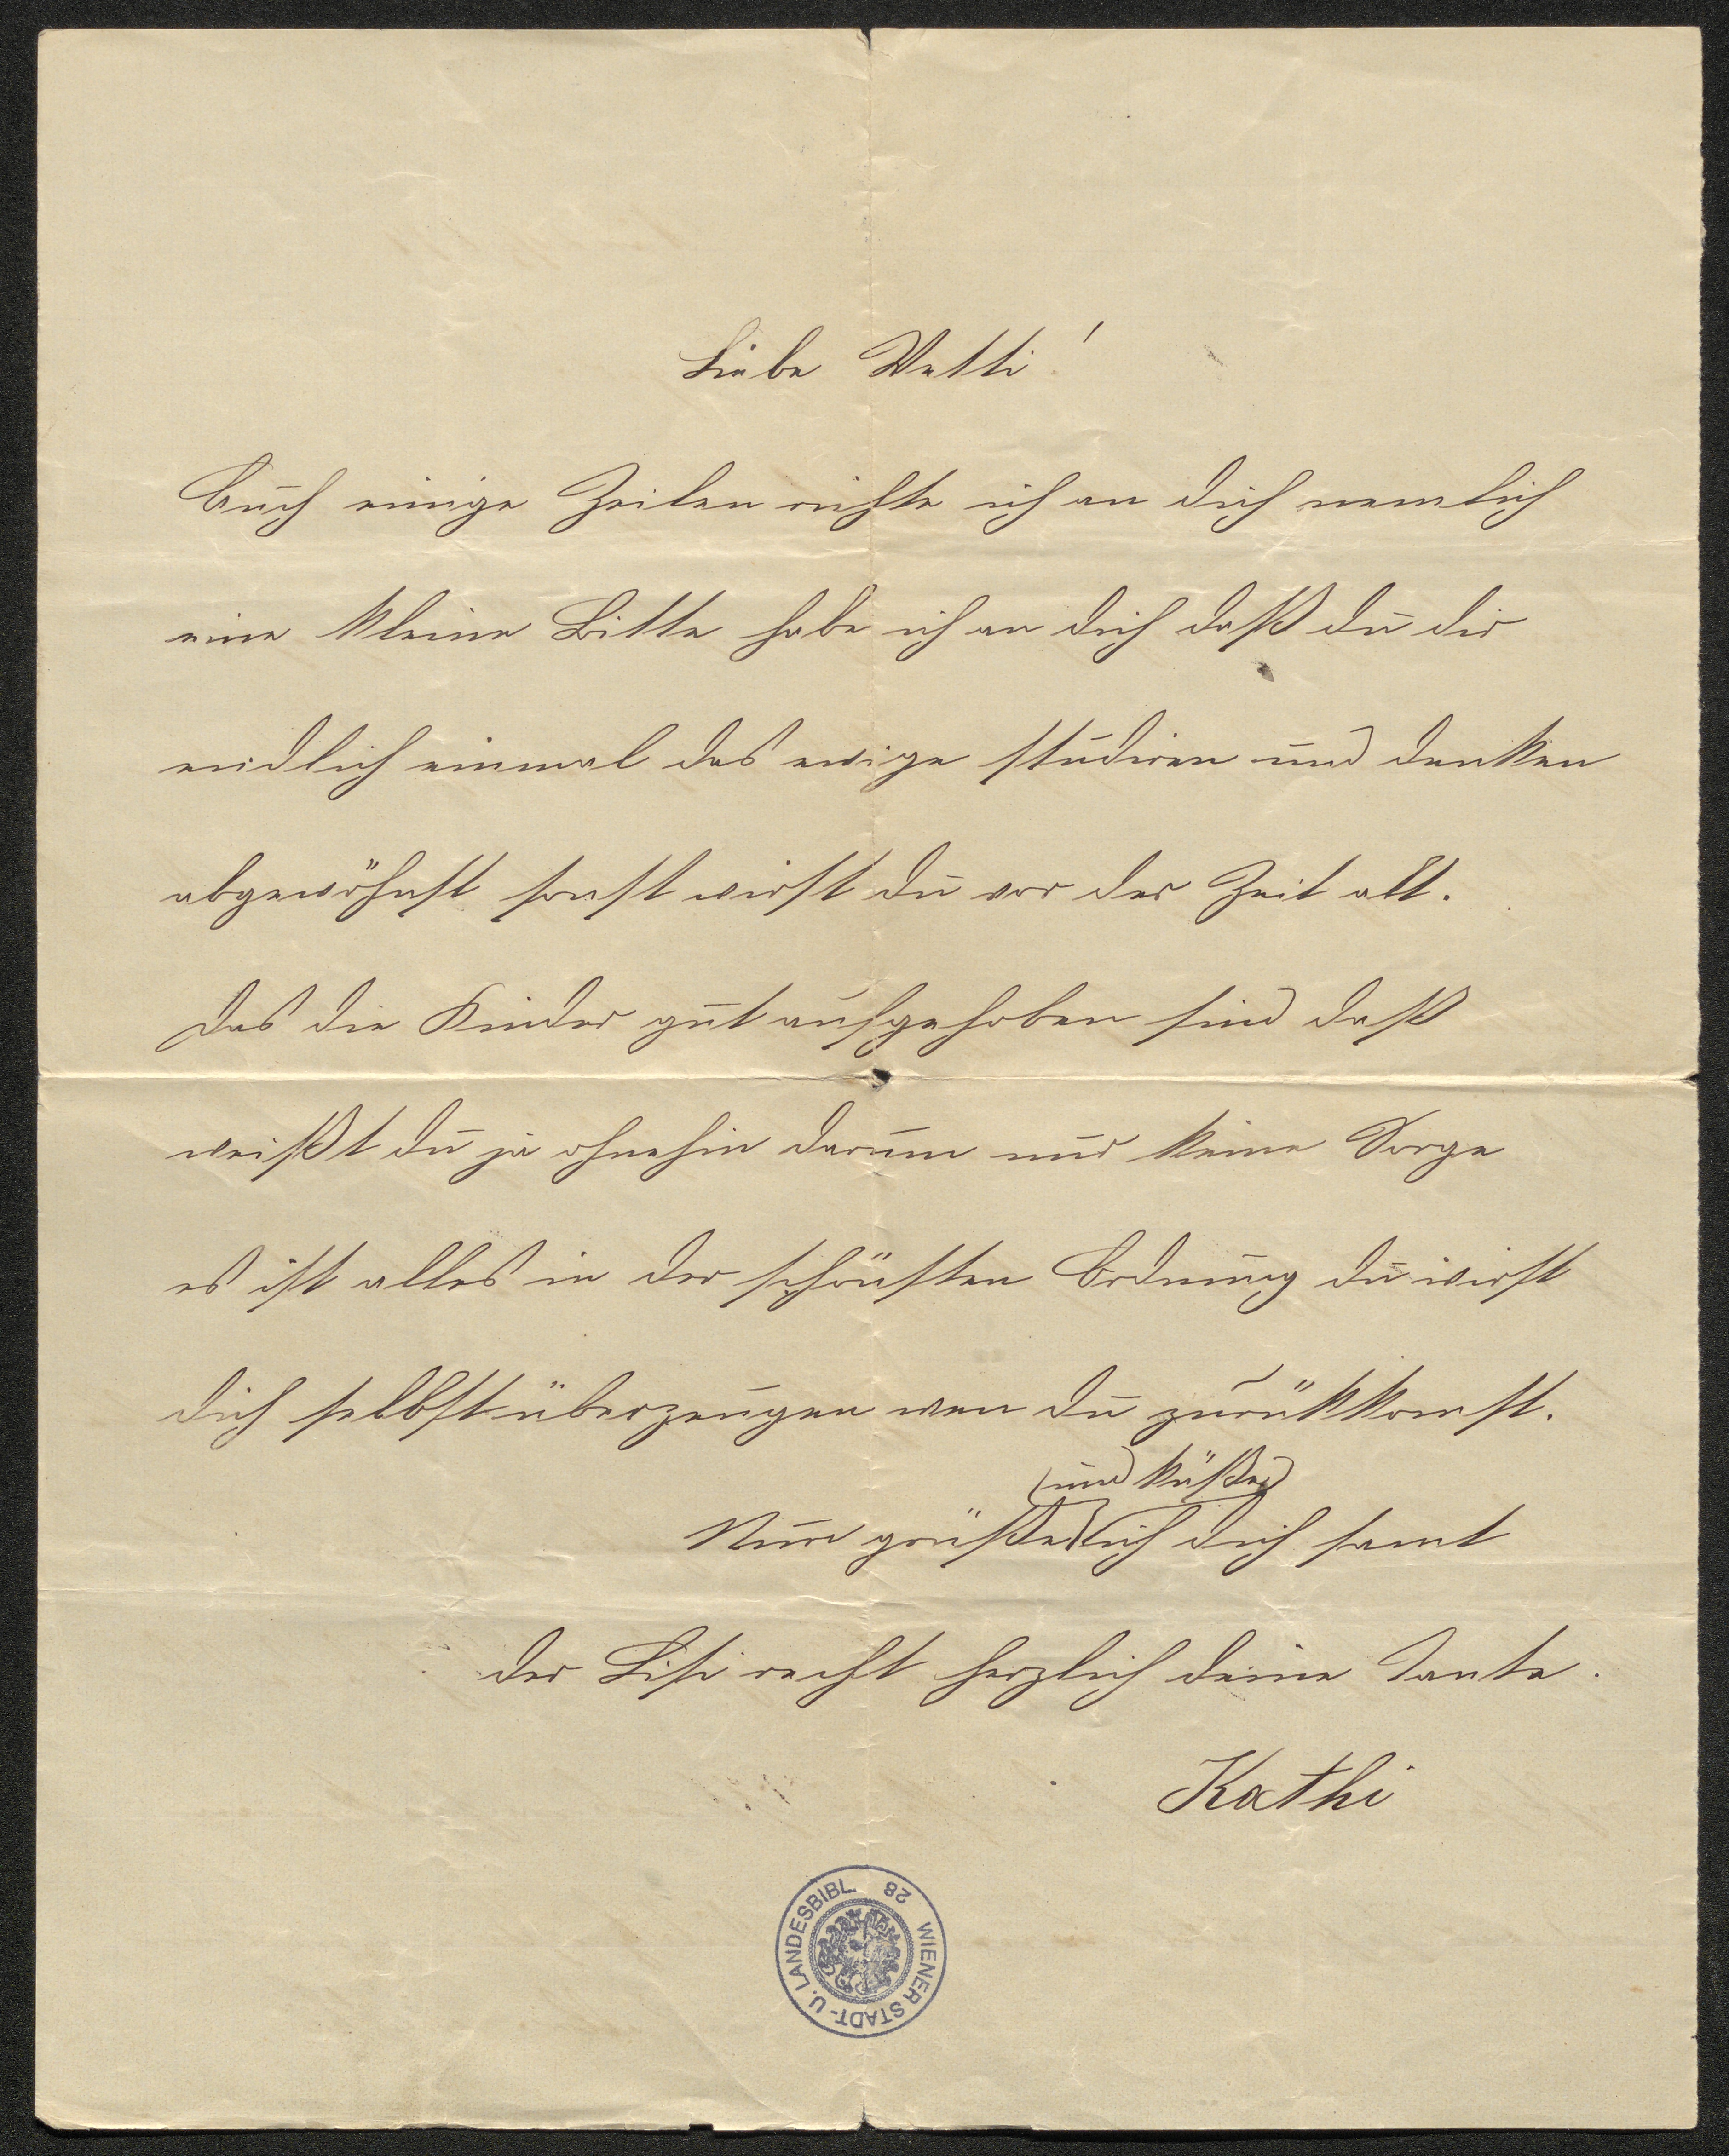 Liebe Netti!
Auch einige Zeilen richte ich an dich nemlich
eine kleine Bitte habe ich an dich daß du dir
endlich einmal das ewige studiren und denken
abgewöhnst sonst wirst du vor der Zeit alt.
Das die Kinder gut aufgehoben sind daß
weißt du ja ohnehin darum nur keine Sorge
es ist alles in der schönsten Ordnung du wirst
dich selbst überzeugen wen du zurükkomst.
und küße
Nun grüße ich dich samt
der Lisi recht herzlich deine Tante.
Kathi
WIENER STADT- U. LANDESBIBL. 28